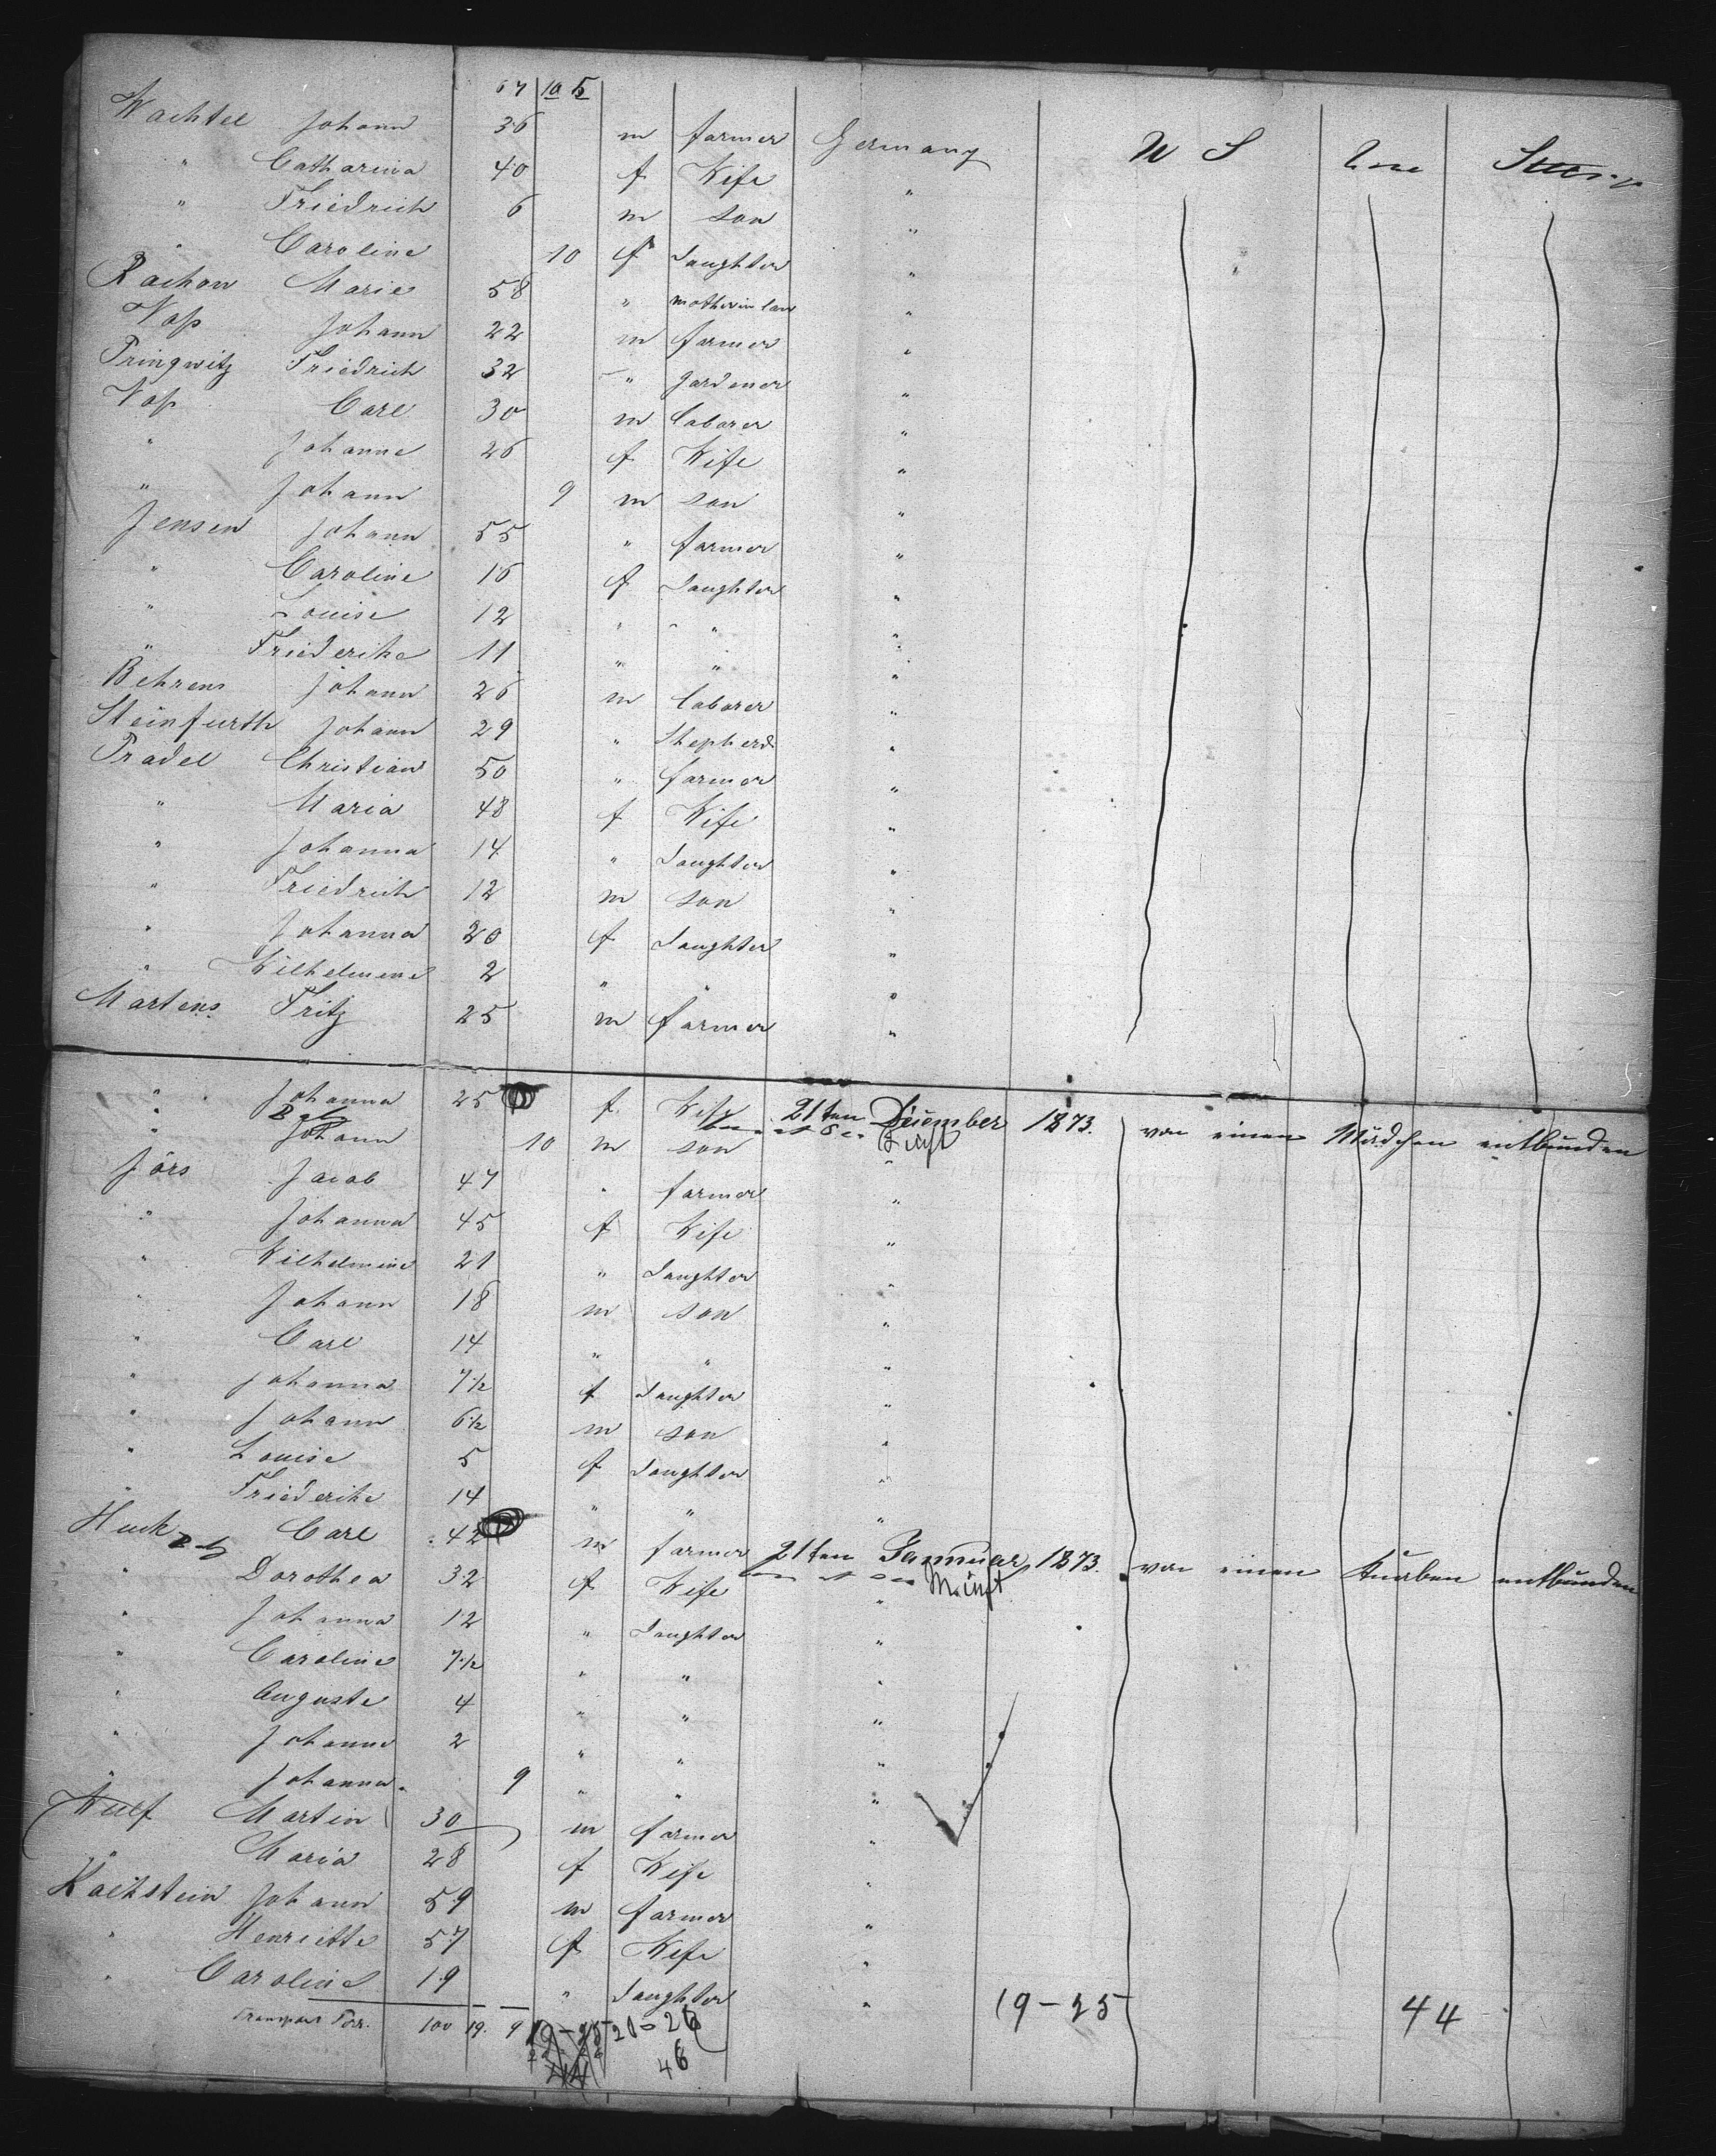 67 10 5
Wachtel Johann 36 m farmer Germany U S
" Catharina 40 f Wife "
" Friedrich 6 m son "
" Caroline 10 f daughter "
Rachow Marie 58 " mother in law "
Vop Johann 22 m farmer "
Pringwitz Friedrich 32 " gardener "
Vop Carl 30 m laborer "
" Johanne 26 f Wife "
" Johann 9 m son "
Jensen Johann 55 " farmer "
" Caroline 16 f daughter "
" Louise 12 " " "
" Friederike 11 " " "
Behrens Johann 26 m laborer "
Steinfurth Johann 29 " Shepherd "
Pradel Christian 50 " farmer "
" Maria 48 f Wife "
" Johanna 14 " daughter "
" Friedrich 12 m son "
" Johanna 20 f daughter "
" Wilhelmine 2 " " "
Martens Fritz 25 m farmer "
" Johanna 25 f Wife 21ten December 1873. von einem Mädchen entbunden
" Johann 10 m son "
Jörs Jacob 47 " farmer "
" Johanna 45 f Wife "
" Wilhelmine 21 " daughter "
" Johann 18 m son "
" Carl 14 " " "
" Johanna 7½ f daughter "
" Johann 6½ m son "
" Louise 5 f daughter "
" Friederike 14 " " "
Huck Carl 42 m farmer 21ten Januar 1873. von einem Knaben entbunden
" Dorothea 32 f Wife "
" Johanna 12 " daughter "
" Caroline 7½ " " "
" Auguste 4 " " "
" Johanne 2 " " "
" Johanna 9 " " "
Wulf Martin 30 m farmer "
" Maria 28 f Wife "
Kachstein Johann 59 m farmer "
" Henriette 57 f Wife "
" Caroline 19 " daughter "
100 19. 9 20-26 19-25 44
46